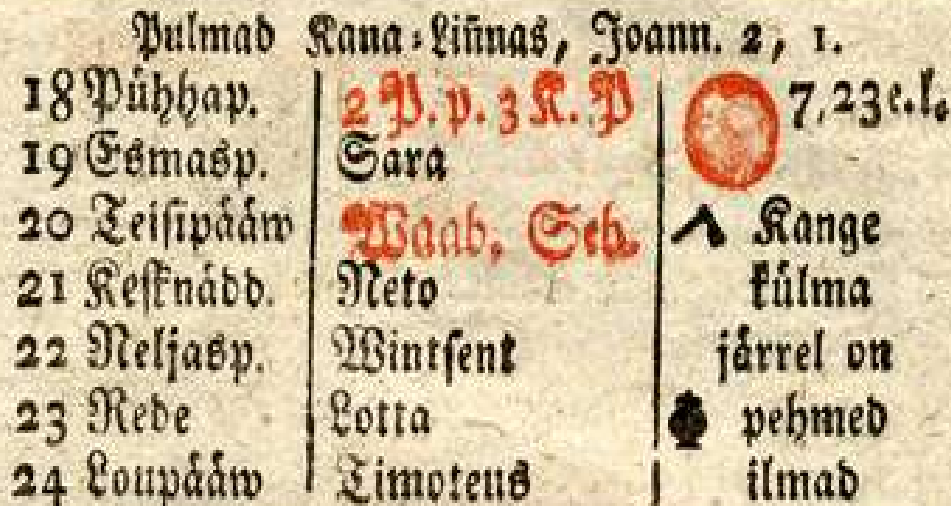 Pulmad Kana-Liñnas, Joann. 2, 1.
18 Pühhap. 2 P. p. 3 K. P 7,23 e. l.
19 Esmasp. Sara
20 Teisipääw Waab. Seb. Kange
21 Kesknädd. Neto külma
22 Neljasp. Wintsent järrel on
23 Rede Lotta pehmed
24 Loupääw Timoteus ilmad